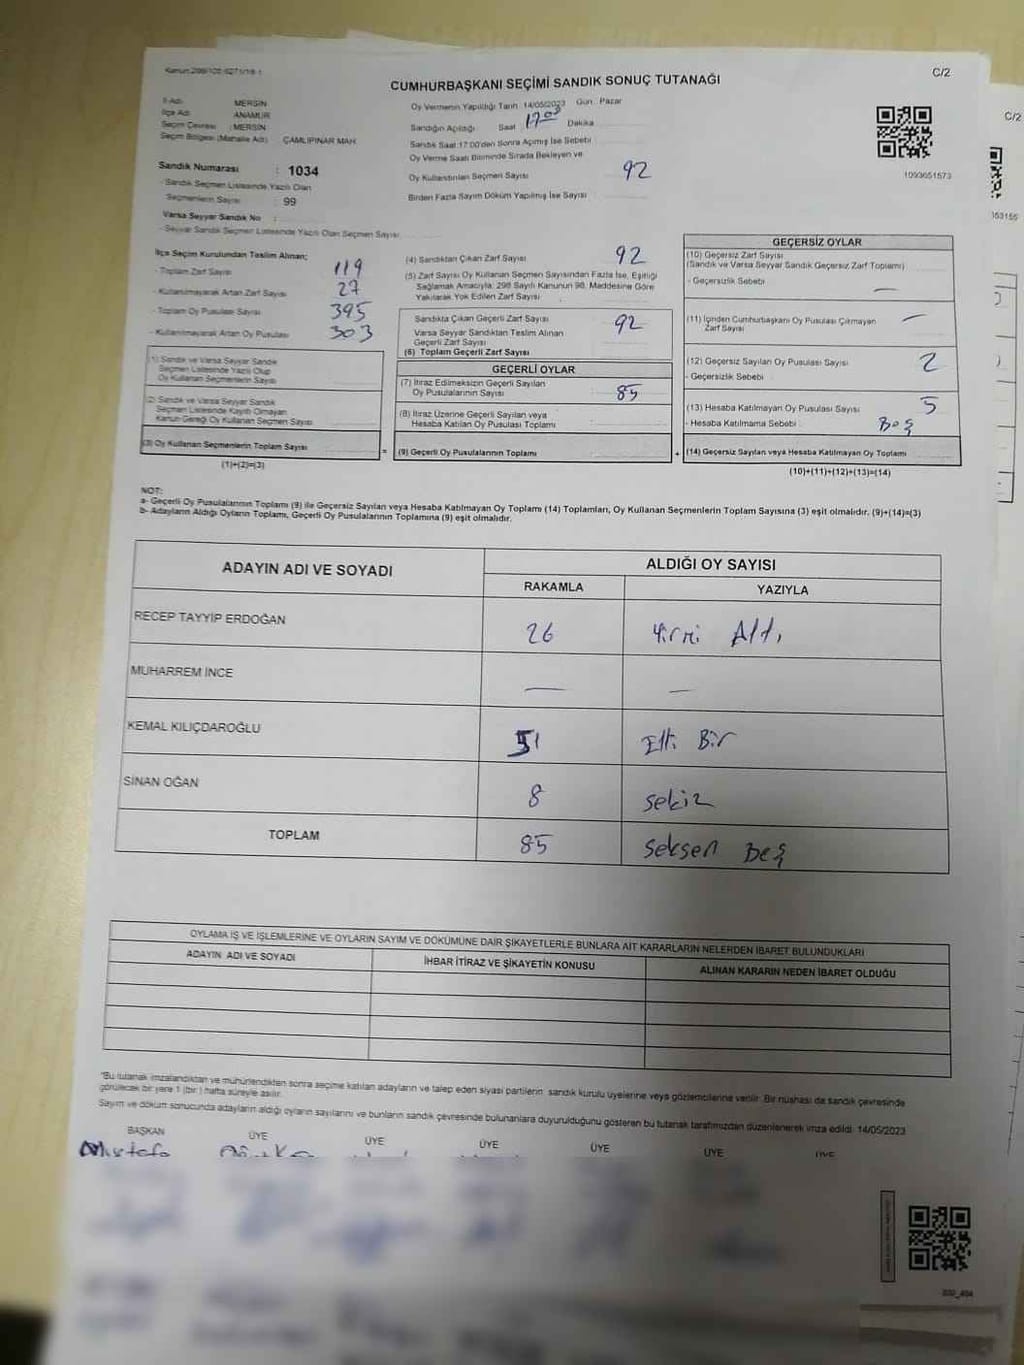 Kanun:298/105-6271/18-1
CUMHURBAŞKANI SEÇİMİ SANDIK SONUÇ TUTANAĞI
C/2
C/2
İl Adı MERSİN
İlçe Adı ANAMUR
Seçim Çevresi : MERSİN
Seçim Bölgesi (Mahalle Adı) ÇAMLIPINAR MAH.
Oy Vermenin Yapıldığı Tarih 14/05/2023 Gün : Pazar
Sandığın Açıldığı Saat 17:00 Dakika
Sandık Saat 17:00'den Sonra Açılmış İse Sebebi
Oy Verme Saati Bitiminde Sırada Bekleyen ve
Oy Kullandırılan Seçmen Sayısı 92
Birden Fazla Sayım Döküm Yapılmış İse Sayısı
1093051573
Sandık Numarası : 1034
- Sandık Seçmen Listesinde Yazılı Olan
Seçmenlerin Sayısı : 99
Varsa Seyyar Sandık No :
- Seyyar Sandık Seçmen Listesinde Yazılı Olan Seçmen Sayısı
İlçe Seçim Kurulundan Teslim Alınan;
- Toplam Zarf Sayısı 119
- Kullanılmayarak Artan Zarf Sayısı 27
- Toplam Oy Pusulası Sayısı 395
- Kullanılmayarak Artan Oy Pusulası 303
(1) Sandık ve Varsa Seyyar Sandık
Seçmen Listesinde Yazılı Olup
Oy Kullanan Seçmenlerin Sayısı
(2) Sandık ve Varsa Seyyar Sandık
Seçmen Listesinde Kayıtlı Olmayan
Kanun Gereği Oy Kullanan Seçmen Sayısı
(3) Oy Kullanan Seçmenlerin Toplam Sayısı
(1)+(2)=(3)
(4) Sandıktan Çıkan Zarf Sayısı 92
(5) Zarf Sayısı Oy Kullanan Seçmen Sayısından Fazla İse, Eşitliği
Sağlamak Amacıyla; 298 Sayılı Kanunun 98. Maddesine Göre
Yakılarak Yok Edilen Zarf Sayısı
Sandıkta Çıkan Geçerli Zarf Sayısı 92
Varsa Seyyar Sandıktan Teslim Alınan
Geçerli Zarf Sayısı
(6) Toplam Geçerli Zarf Sayısı
GEÇERLİ OYLAR
(7) İtiraz Edilmeksizin Geçerli Sayılan
Oy Pusulalarının Sayısı 85
(8) İtiraz Üzerine Geçerli Sayılan veya
Hesaba Katılan Oy Pusulası Toplamı
= (9) Geçerli Oy Pusulalarının Toplamı
GEÇERSİZ OYLAR
(10) Geçersiz Zarf Sayısı
(Sandık ve Varsa Seyyar Sandık Geçersiz Zarf Toplamı)
- Geçersizlik Sebebi —
(11) İçinden Cumhurbaşkanı Oy Pusulası Çıkmayan —
Zarf Sayısı
(12) Geçersiz Sayılan Oy Pusulası Sayısı 2
- Geçersizlik Sebebi
(13) Hesaba Katılmayan Oy Pusulası Sayısı 5
- Hesaba Katılmama Sebebi Boş
+ (14) Geçersiz Sayılan veya Hesaba Katılmayan Oy Toplamı
(10)+(11)+(12)+(13)=(14)
NOT:
a- Geçerli Oy Pusulalarının Toplamı (9) ile Geçersiz Sayılan veya Hesaba Katılmayan Oy Toplamı (14) Toplamları, Oy Kullanan Seçmenlerin Toplam Sayısına (3) eşit olmalıdır. (9)+(14)=(3)
b- Adayların Aldığı Oyların Toplamı, Geçerli Oy Pusulalarının Toplamına (9) eşit olmalıdır.
ADAYIN ADI VE SOYADI
ALDIĞI OY SAYISI
RAKAMLA YAZIYLA
RECEP TAYYİP ERDOĞAN 26 Yirmi Altı
MUHARREM İNCE — —
KEMAL KILIÇDAROĞLU 51 Elli Bir
SİNAN OĞAN 8 Sekiz
TOPLAM 85 Seksen Beş
OYLAMA İŞ VE İŞLEMLERİNE VE OYLARIN SAYIM VE DÖKÜMÜNE DAİR ŞİKAYETLERLE BUNLARA AİT KARARLARIN NELERDEN İBARET BULUNDUKLARI
ADAYIN ADI VE SOYADI İHBAR İTİRAZ VE ŞİKAYETİN KONUSU ALINAN KARARIN NEDEN İBARET OLDUĞU
*Bu tutanak imzalandıktan ve mühürlendikten sonra seçime katılan adayların ve talep eden siyasi partilerin sandık kurulu üyelerine veya gözlemcilerine verilir. Bir nüshası da sandık çevresinde
görülecek bir yere 1 (bir) hafta süreyle asılır.
Sayım ve döküm sonucunda adayların aldığı oyların sayılarını ve bunların sandık çevresinde bulunanlara duyurulduğunu gösteren bu tutanak tarafımızdan düzenlenerek imza edildi. 14/05/2023
BAŞKAN ÜYE ÜYE ÜYE ÜYE ÜYE ÜYE
Mustafa